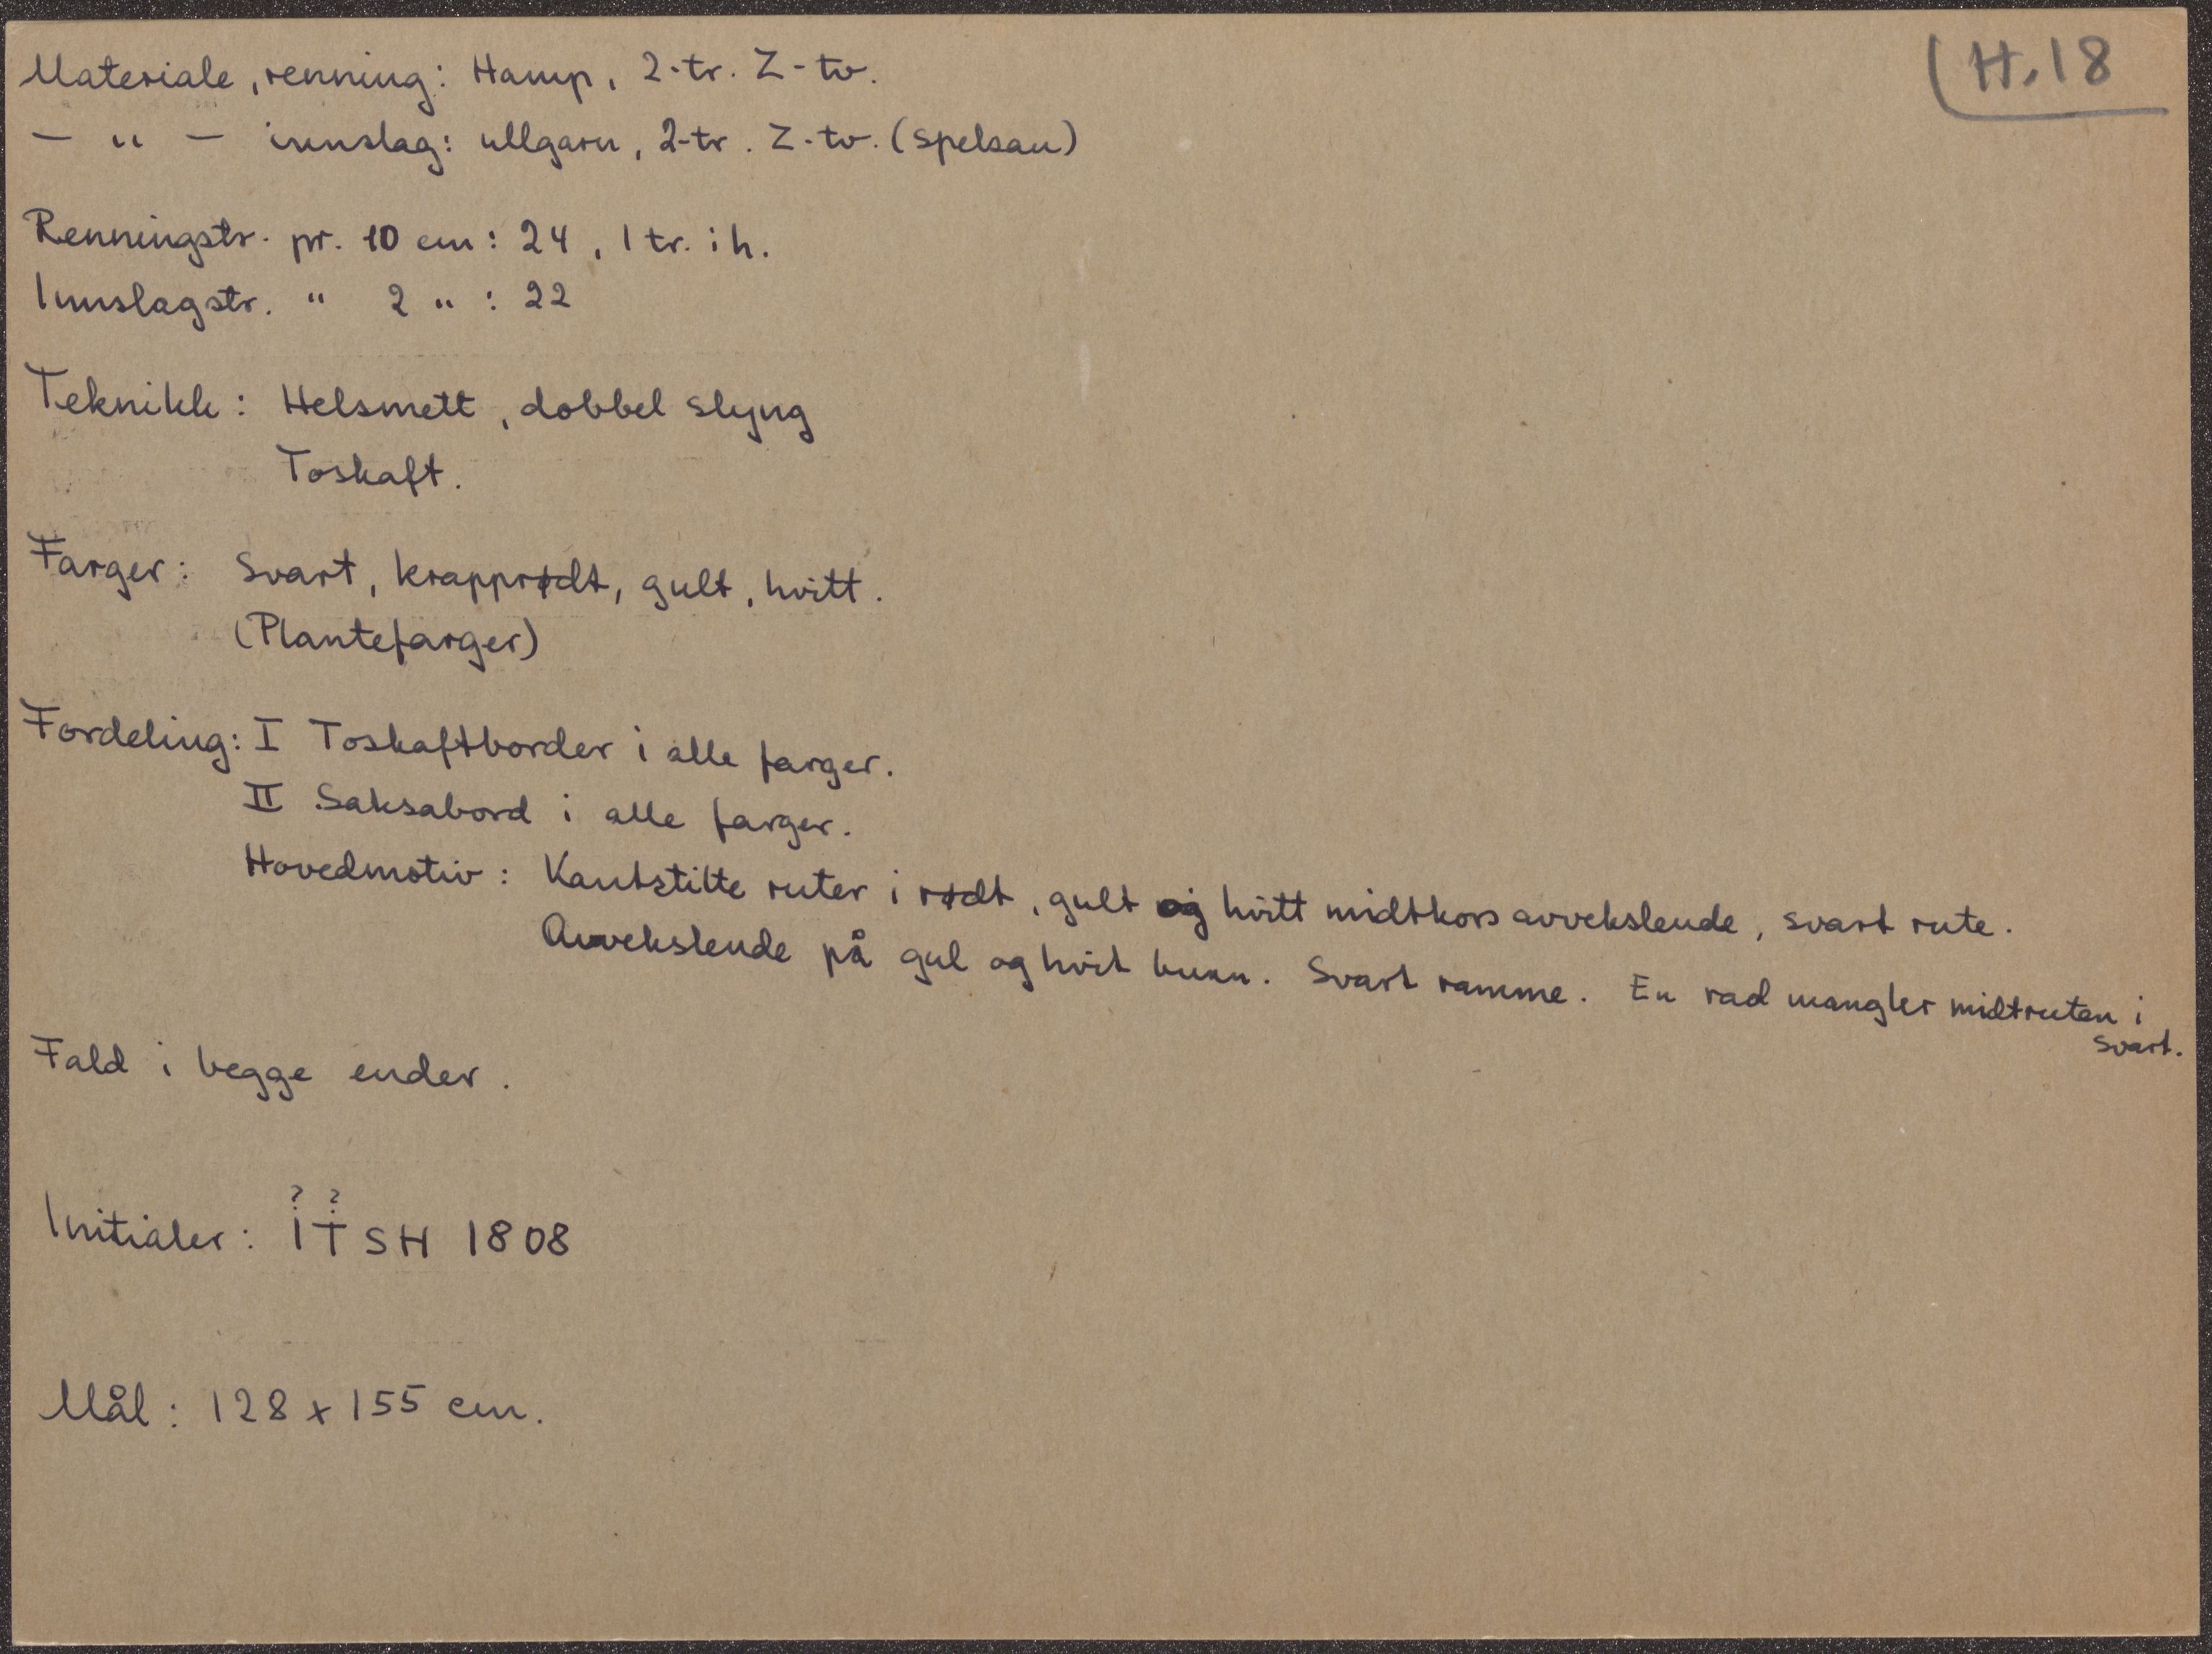 H. 18
Materiale, renning: Hamp, 2-tr. Z-tv.
— " — innslag: ullgarn, 2-tr. Z-tv. (spelsau)
Renningstr. pr. 10 cm: 24, 1 tr. i h.
Innslagstr. " 2 " : 22
Teknikk: Helsmett, dobbel slyng
Toskaft.
Farger: Svart, krapprødt, gult, hvitt.
(Plantefarger)
Fordeling: I Toskaftborder i alle farger.
II Saksabord i alle farger.
Hovedmotiv: Kantstilte ruter i rødt, gult og hvitt midtkors avvekslende, svart rute.
Avvekslende på gul og hvit bunn. Svart ramme. En rad mangler midtruten i
svart.
Fald i begge ender.
? ?
Initialer: I T S H 1808
Mål: 128 x 155 cm.